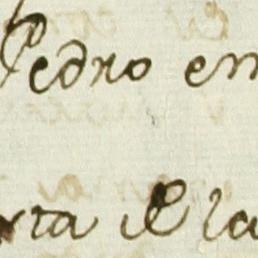 Pedro en
rta de la